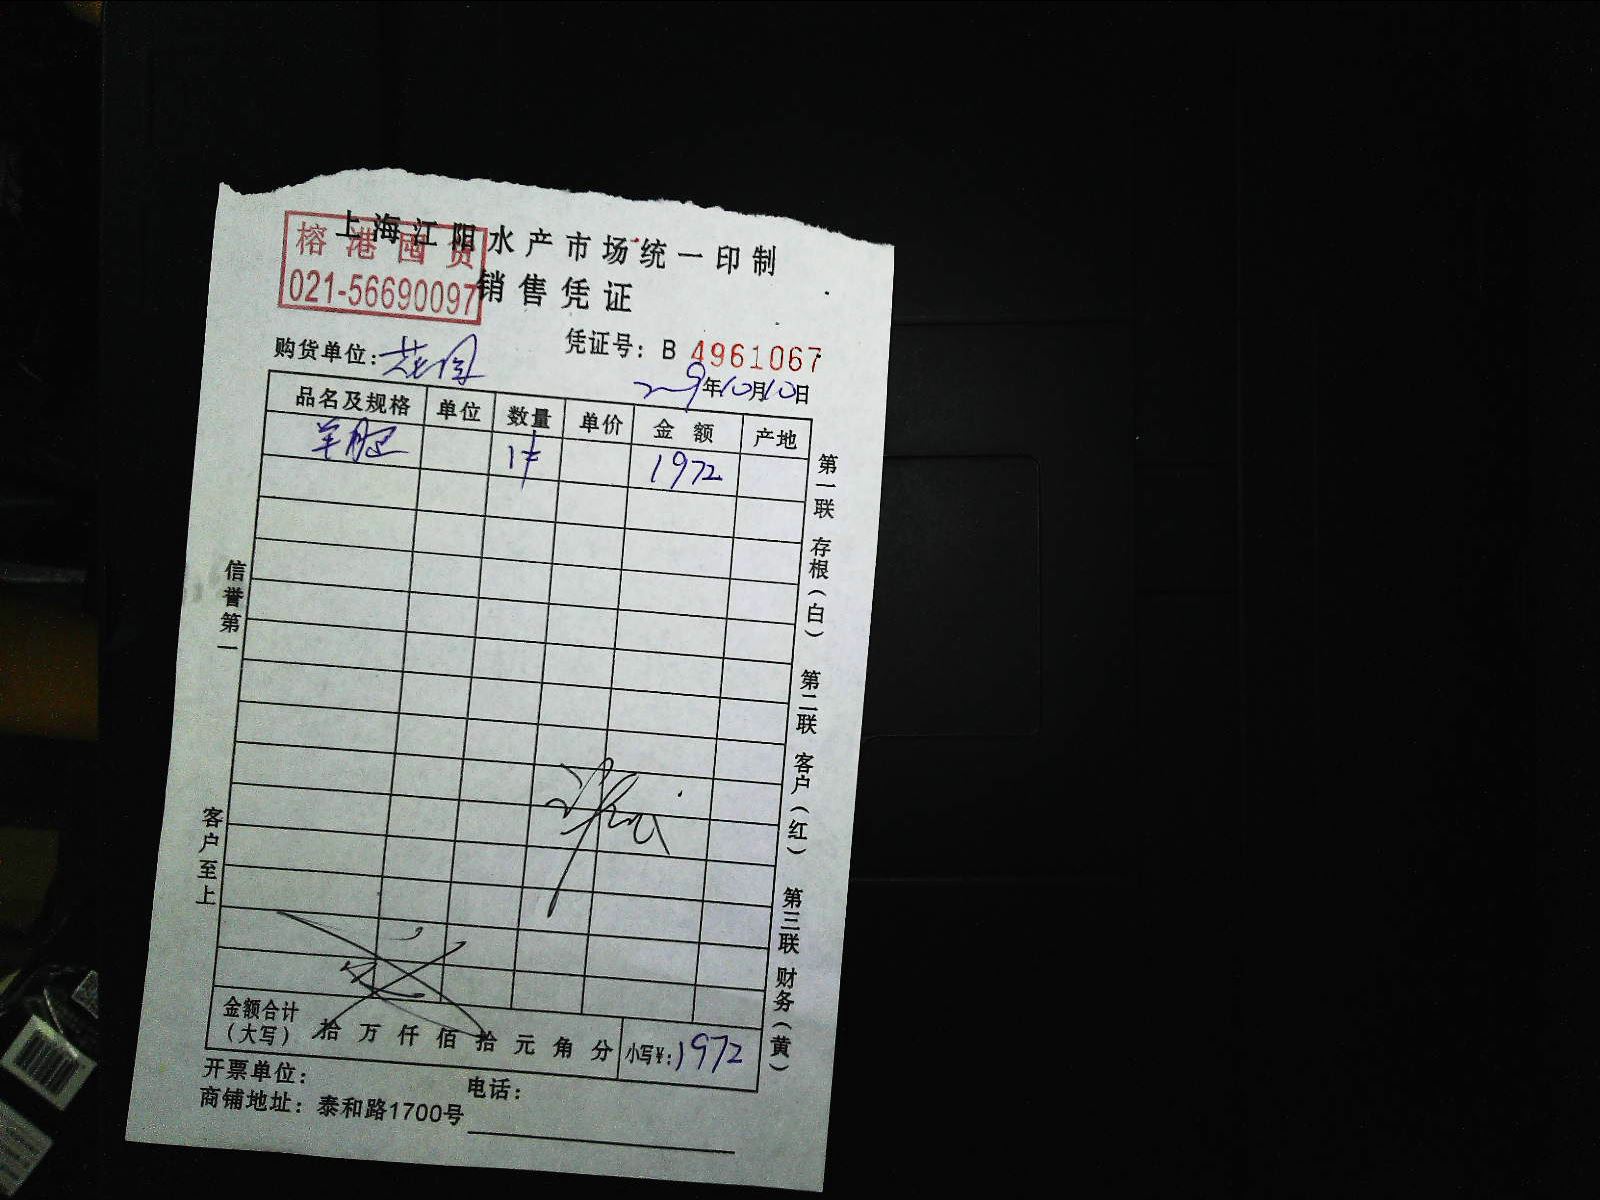 上海江阳水产市场统一印制
榕港囤货
021-56690097
销售凭证
凭证号：B 4961067
购货单位：
年10月10日
品名及规格 单位 数量 单价 金额 产地
羊腿 1件 1972
信誉第一
客户至上
第一联 存根（白） 第二联 客户（红） 第三联 财务（黄）
金额合计（大写） 拾 万 仟 佰 拾 元 角 分 小写¥：1972
开票单位： 电话：
商铺地址：泰和路1700号